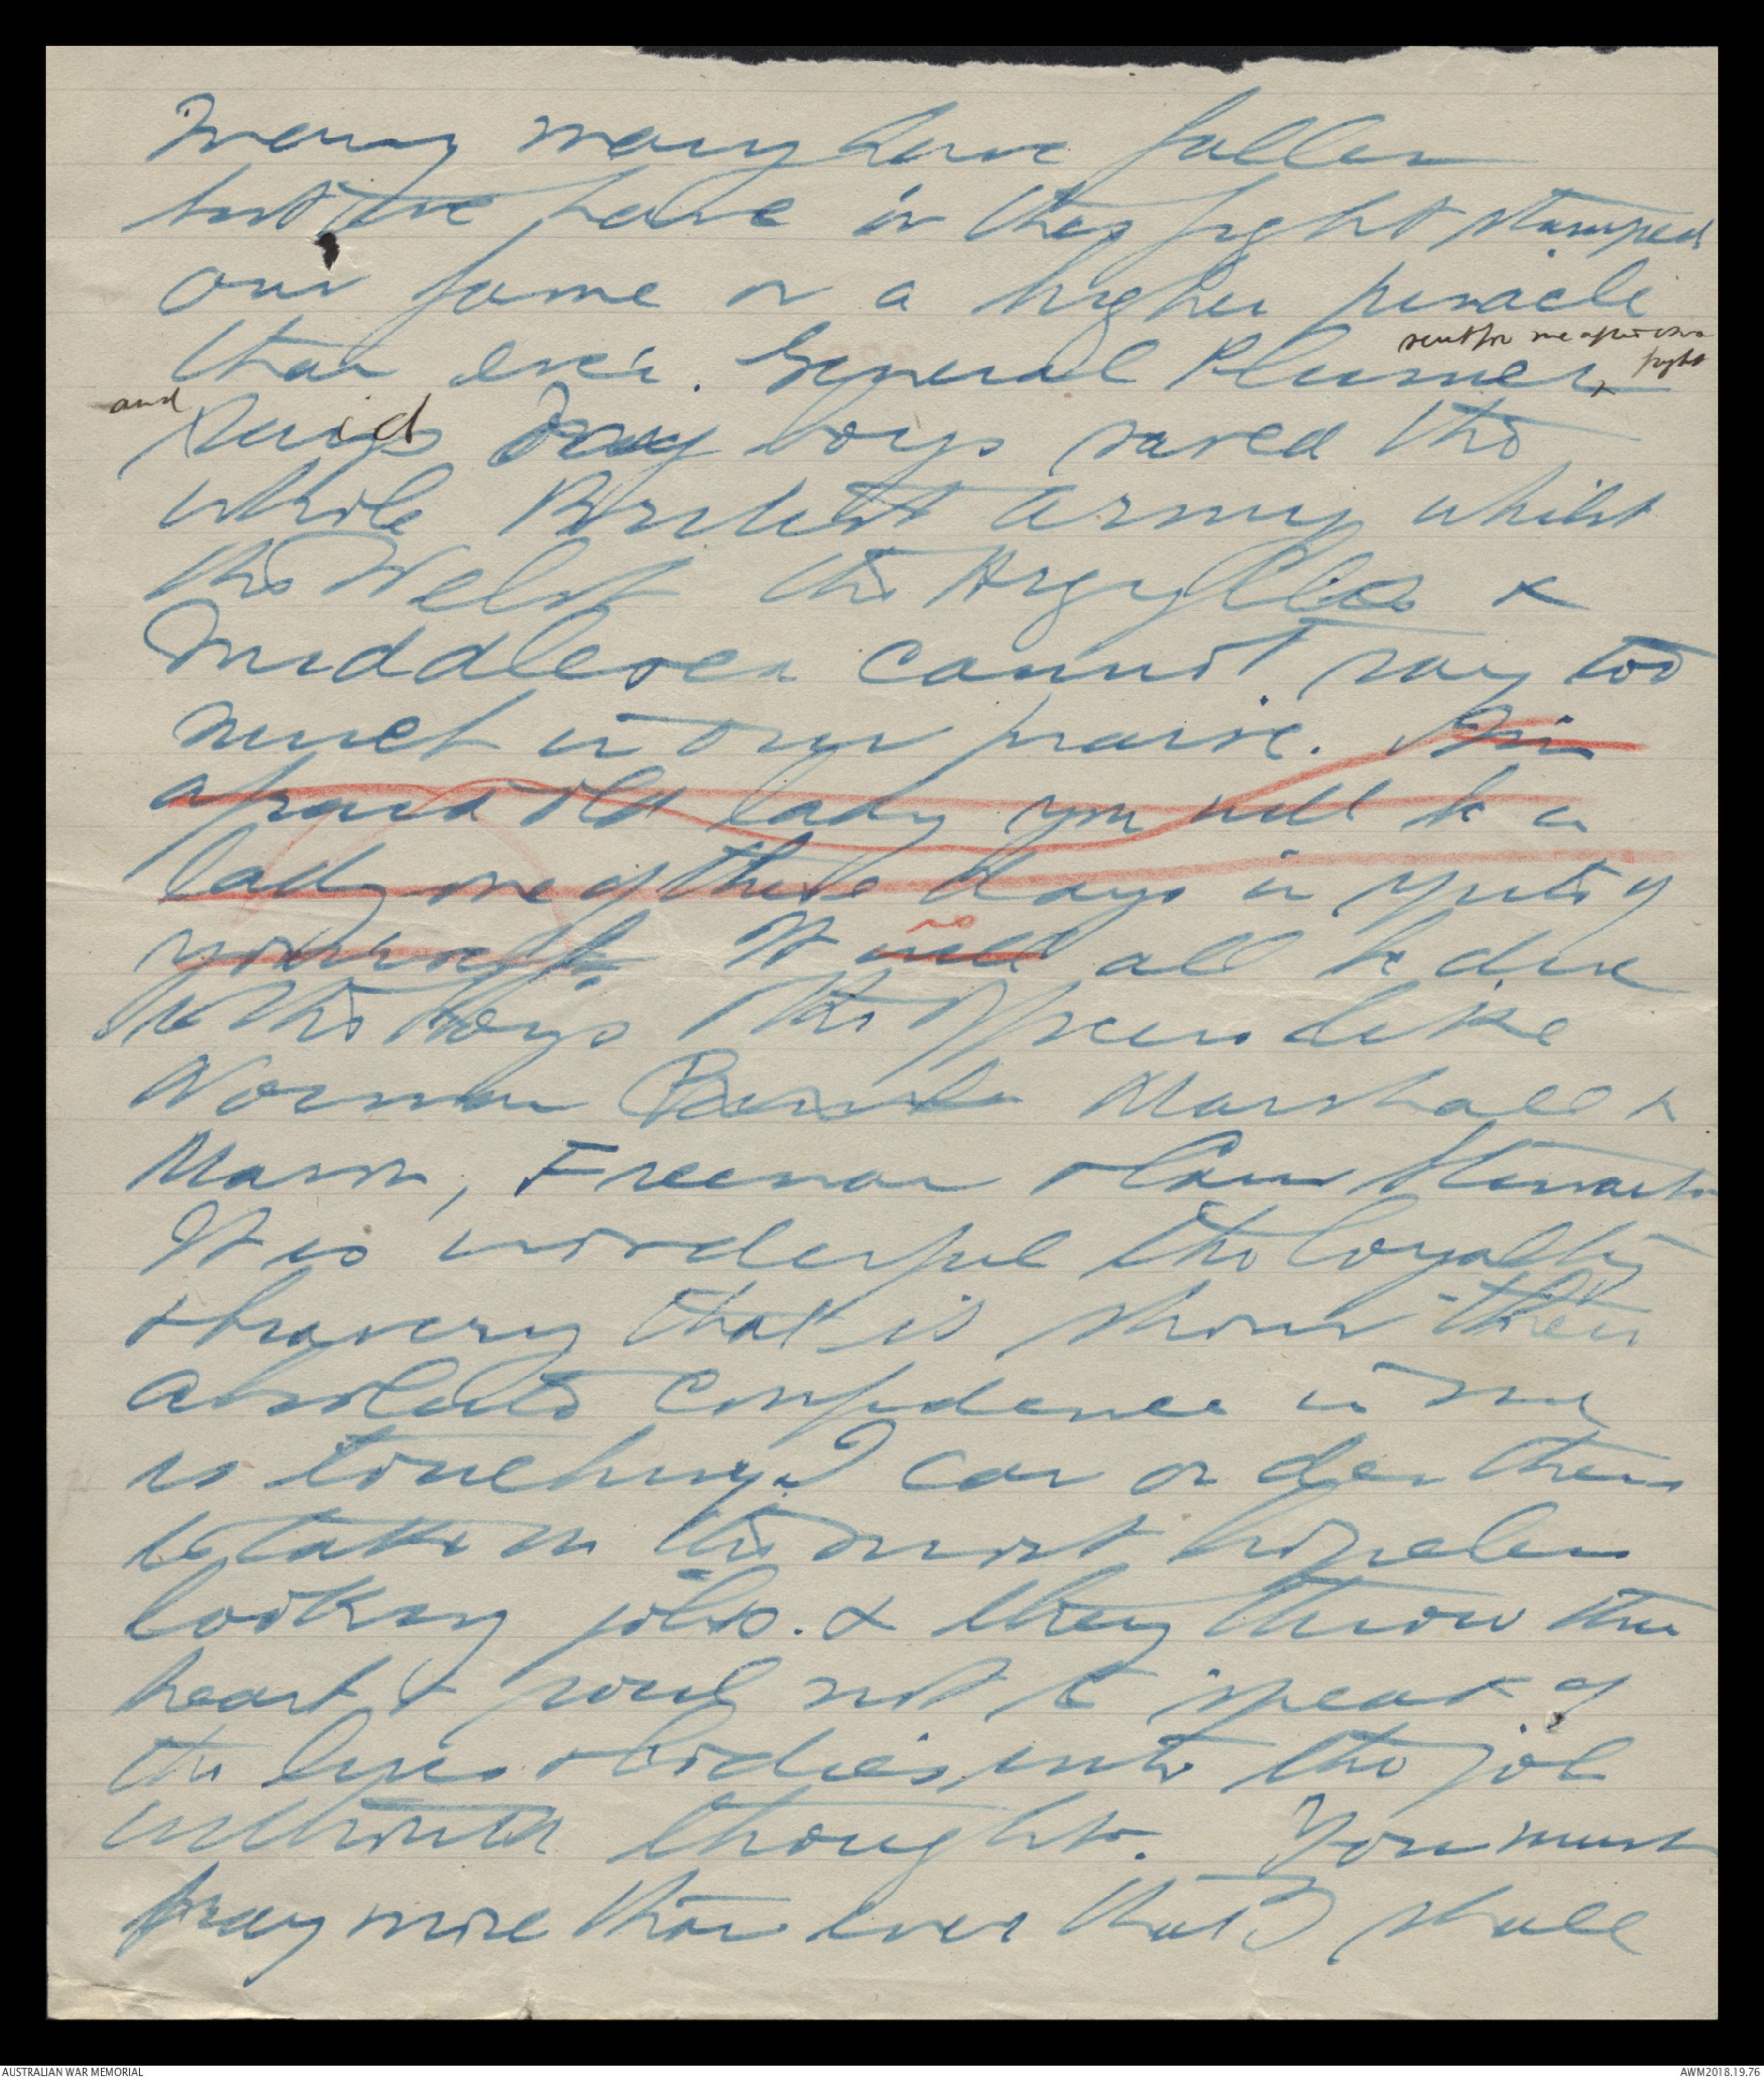 many many have fallen
but we have in this fight stamped
our fame on a higher pinacle
than ever. General Plumer
sent for me after our
fight
and
said my boys saved the
whole British Army whilst
the Welsh the Argylles &
Middlesex cannot say too
much in our praise. I'm
afraid old lady you will be a
lady one of these days in spite of
yourself. It will all be due
is
to the boys & the officers like
Norman Marshall &
Mason, Freeman & Cam Stewart
It is wonderful the loyalty
& bravery that is shown their
absolute confidence in me
is touching. I can order them
to take on the most hopeless
looking jobs. & they throw their
heart & soul not to speak of
the lives & bodies into the job
without thought. You must
pray more than ever that I shall
AUSTRALIAN WAR MEMORIAL
AWM2018.19.76